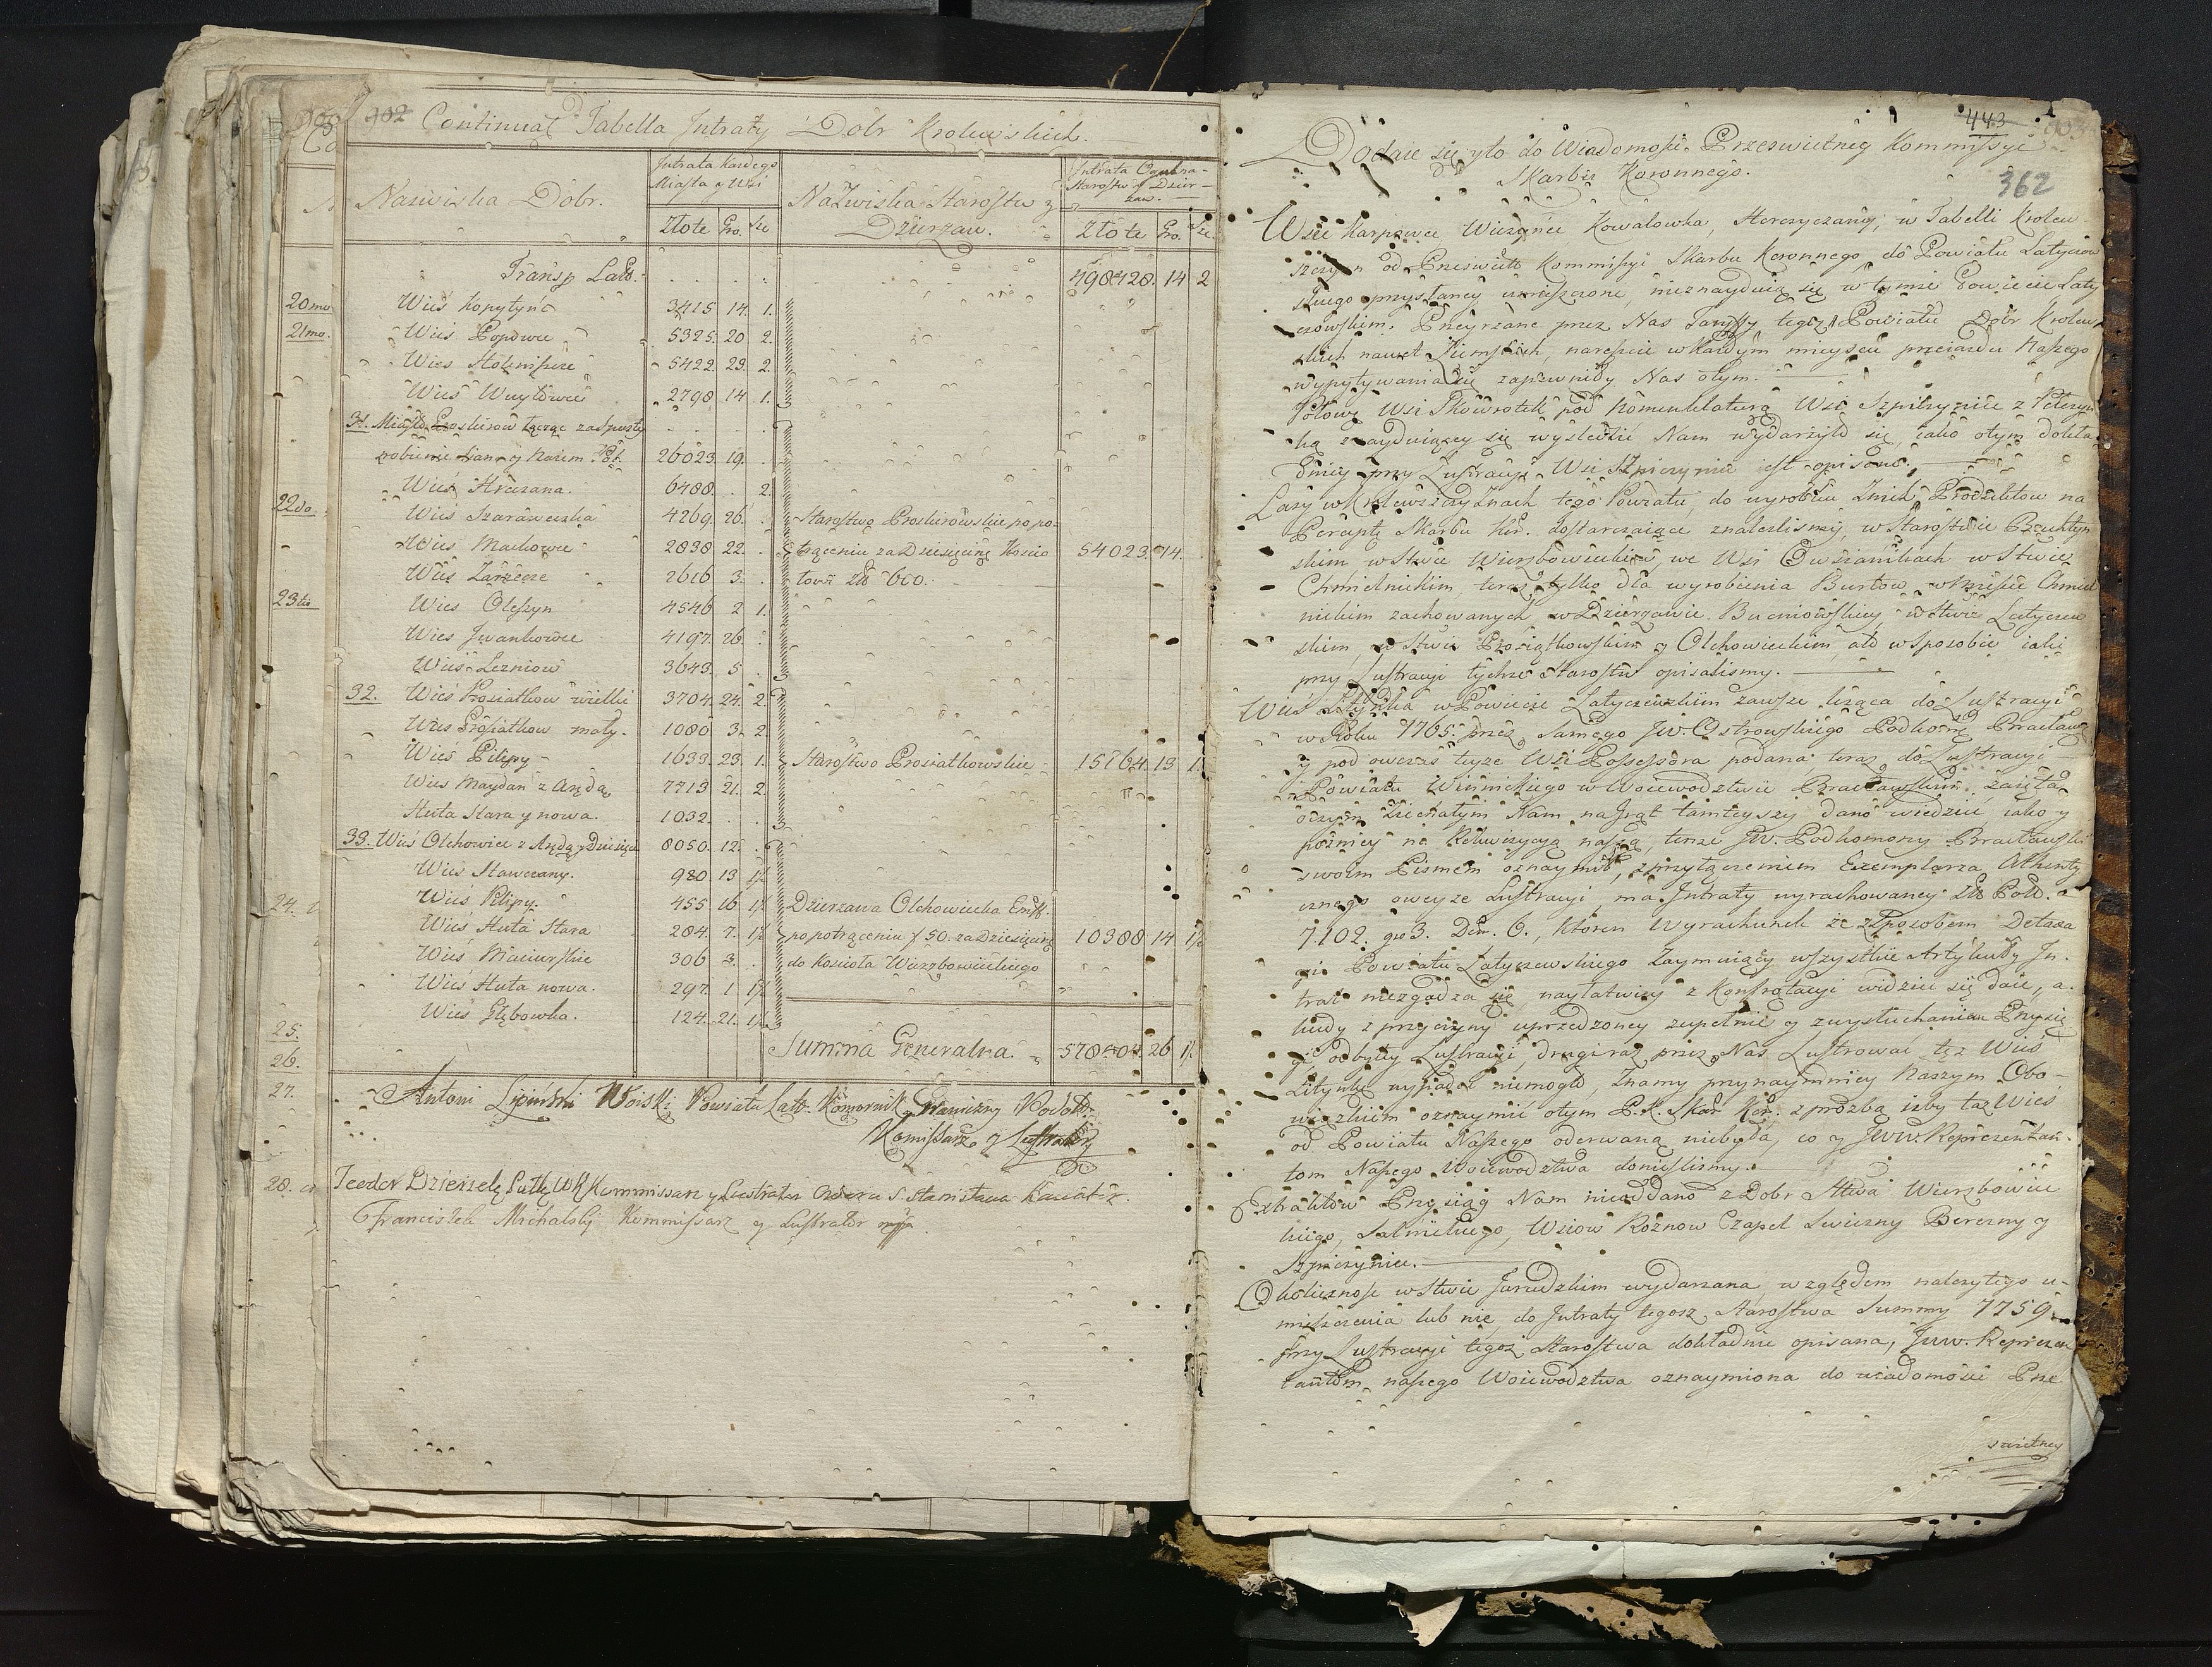 902 Continuat Tabella Intraty Dobr Krolewskich.
Nazwiska Dobr.
Intrata każdego Miasta y Wsi
Złote Gro. Sze
Nazwiska Starostw y Dzierzaw.
Intrata Starostw y Dzierzaw.
Złote Gro. Sze.
Transp Lat. 498428. 14 2
20mo Wieś Kopytyńce 3415 14. 1.
21mo. Wieś Popowce 5325. 20 2.
Wieś Hołenisze 5422. 29. 2.
Wieś Wuytowce 2798 14 1.
31. Miasto Proskurow
26023. 19.
Wieś Hreczana. 6488. . 2.
22do Wieś Szaraweczka 4269. 26. Starostwo Proskurowskie po po-
Wieś Machowce 2838 22. trąceniu za Dziesięcinę Koscio 54023. 14.
Wieś Zarzecze 2616 3. łowi zł 600.
23tio Wieś Oleszyn 4546 2 1.
Wieś Iwankowce 4197. 26.
Wieś Lezniow 3643. 5
32. Wieś Prosiatkow wielki 3704. 24. 2.
Wieś Prosiatkow mały. 1080 3. 2
Wieś Pilipy 1633. 23. 1. Starostwo Prosiatkowskie 15764. 13 1
Wieś Maydan z Arędą 7713 21. 2.
Huta Stara y nowa. 1032.
33. Wieś Olchowiec z Arędą y 8050. 12.
Wieś Stawczany. 980. 13 1/2
24. Wieś Pilipy. 455 16 1/2 Dzierzawa Olchowiecka
Wieś Huta Stara 284 7. 1/2 po potrąceniu f 50. za Dziesięcinę 10388 14 1/2
Wieś 306 3. do Koscioła Wierzbowieckiego
Wieś Huta nowa. 297. 1 1/2
Wieś Głębowka. 124. 21. 1/2
25.
26. Summa Generalna. 578404. 26 1/2
27. Antoni Lipiński Woiski Powiatu Lat. Komornik Graniczny Podol.
Komissarz y Lustrator
28. Teodor Dzierzek Kommissarz y Lustrator Orderu S. Stanisława Kawaler.
Franciszek Michalski Kommissarz y Lustrator
443 903
Dodaie się y to do Wiadomości Przeswietney Kommissyi
Skarbu Koronnego.
362
Wsie Karpowce Kowalowka, w Tabelli Krolew
szczyzn od Przeswiet Kommissyi Skarbu Koronnego do Powiatu Latyczow
skiego przysłaney umieszczone, nieznayduią się w tymże Powiecie Laty
czowskim. Przeyrzane przez Nas Taryffy tegoż Powiatu Dobr Krolew
skich nawet Ziemskich, nareszcie w każdym mieyscu przeiazdu Naszego
wypytywania się zapewniły Nas o tym.
Połowę Wsi Skowrotek pod Nomenklaturą Wsi Szpiczyniec z
ką znayduiącey się wysledzić Nam wydarzyło się, iako o tym dokła
dniey przy Lustracyi Wsi Szpiczyniec iest opisano.
Lasy w Krolewszczyznach tego Powiatu, do wyrobku Innich Produktow na
Perceptę Skarbu Kor. dostarczaiące znalezlismy, w Starostwie
skim w Stwie Wierzbowieckim, we Wsi Owsiannikach w Stwie
Chmielnickim, teraz tylko dla wyrobienia w Mieście Chmiel
nickim zachowanych w Dzierzawie Bucniowskiey, w Stwie Latyczew
skim, w Stwie Prosiątkowskim y Olchowieckim, ale w sposobie iaki
przy Lustracyi tychże Starostw opisalismy.
Wieś Litynka w Powiecie Latyczewskim zawsze leząca do Lustracyi
w Roku 1765. przez Samego Jw. Ostrowskiego Podkom Bracławs
y pod owczas teyze Wsi Possessora podana teraz do Lustracyi
Powiatu Winnickiego w Woiewodztwie Bracławskim zaięta
o czym Nam na Grąt tamteyszy dano wiedzieć, iako y
pozniey na Rekwizycyą naszą, tenze Jw. Podkomorzy Bracławski
swoim Pismem oznaymił, z przyłączeniem Exemplarza Athenty
cznego oweyze Lustracyi, ma Intraty wyrachowaney Zł Pol.
7102. gr 3. Den. 6., ktoren Wyrachunek ze Sposobem
cyi Powiatu Latyczewskiego Zaymuiący wszystkie Artykuły In-
trat niezgadza się nayłatwiey z Konfrątacyi widzieć się daie, a.
kiedy z przyczyny uprzedzoney zupełnie y zwysłuchaniem Przysię
gi, odbytey Lustracyi drugi raz przez Nas Lustrować tę Wieś
Litynkę wypadać niemogło, Znamy przynaymniey Naszym Obo-
wiązkiem oznaymić o tym P. K. Skar Kor. z prozbą izby ta Wieś
od Powiatu Naszego oderwaną niebyła, co y JWW. Reprezentan-
tom Naszego Woiewodztwa donieslismy.
Extraktow Przysiąg Nam nieoddano z Dobr Stwa Wierzbowiec
kiego, Wsiow Roznow Czapel Berezny y
Szpiczyniec.
Okolicznosc w Stwie wydarzana względem nalezytego u-
mieszczenia lub nie, do Intraty tegosz Starostwa Summy 7759
przy Lustracyi tegoż Starostwa dokładnie opisana, Jww. Reprezen
tantom naszego Woiewodztwa oznaymiona do wiadomości Prze
swietney